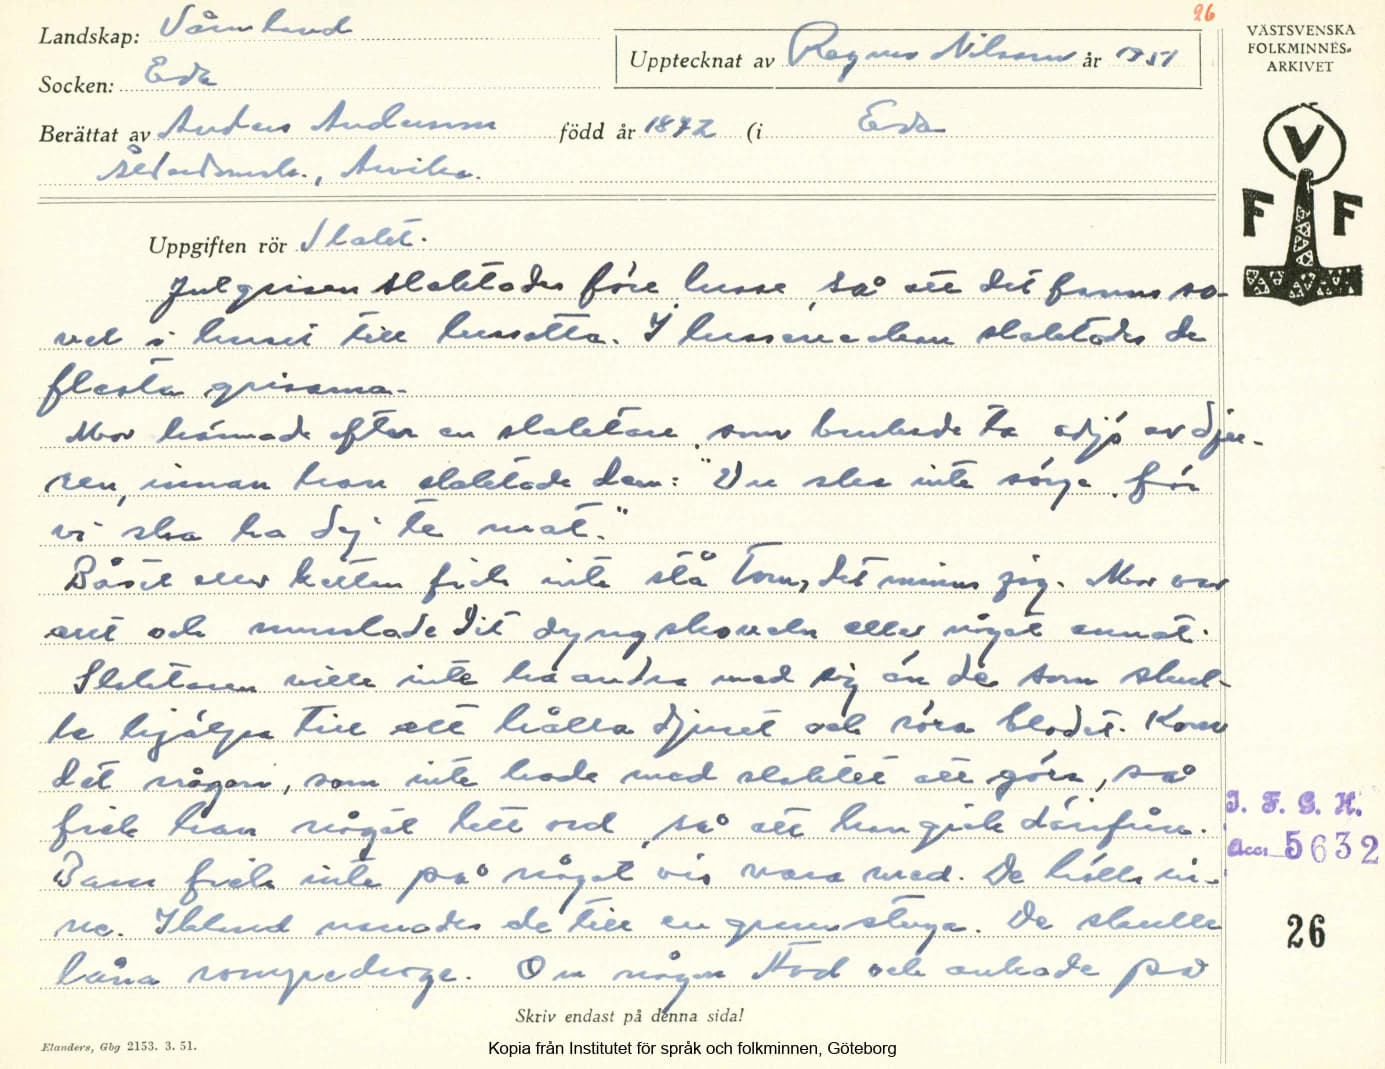 26
Landskap: Värmland
Upptecknat av Ragnar Nilsson år 1951
Socken: Eda
Berättat av Anders Andersson född år 1872 (i Eda
Ålderdomsh., Arvika.
VÄSTSVENSKA
FOLKMINNES-
ARKIVET
V
F F
Uppgiften rör Slakt.
Julgrisen slaktades före lusse, så att det fanns so-
vel i huset till lussotta. I lusseveckan slaktades de
flesta grisarna.
Mor hämtade efter en slaktare, som brukade ta adjö av dju-
ren, innan han slaktade dem: "Du ska inte sörja, för
vi ska ha dej te mat."
Båset eller kätten fick inte stå tom, det minns jag. Mor var
ute och mumlade dit dyngskoveln eller något annat.
Slaktaren ville inte ha andra med sig än de som skul-
le hjälpa till att hålla djuret och röra blodet. Kom
det någon, som inte hade med slaktet att göra, så
fick han något hett ord, så att han gick därifrån.
Barn fick inte på något vis vara med. De hölls in-
ne. Ibland narrades de till en grannstuga. De skulle
låna rompedroge. Om någon stod och ankade på
I. F. G. H.
Acc. 5632
26
Skriv endast på denna sida!
Elanders, Gbg 2153. 3. 51.
Kopia från Institutet för språk och folkminnen, Göteborg